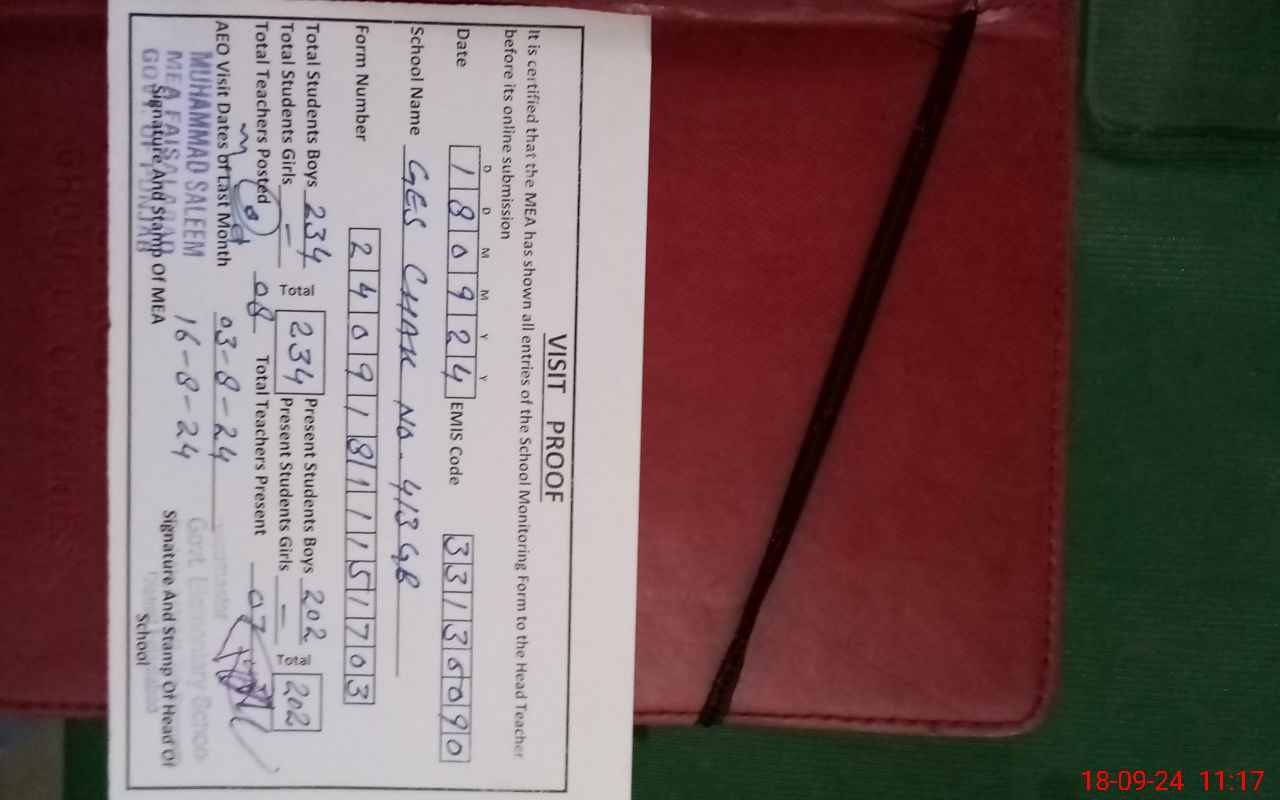 VISIT PROOF
It is certified that the MEA has shown all entries of the School Monitoring Form to the Head Teacher
before its online submission
D D M M Y Y
Date 180924 EMIS Code 33130090
School Name GES CHAK NO. 413 GB
Form Number 2409181115703
Total Students Boys 234 Total 234 Present Students Boys 202 Total 202
Total Students Girls – Present Students Girls –
Total Teachers Posted 08 Total Teachers Present 07
AEO Visit Dates of Last Month 03-8-24
16-8-24
MUHAMMAD SALEEM
MEA FAISALABAD
GOVT. OF PUNJAB
Signature And Stamp Of MEA
Govt. Elementary School
Signature And Stamp Of Head Of
School
18-09-24 11:17